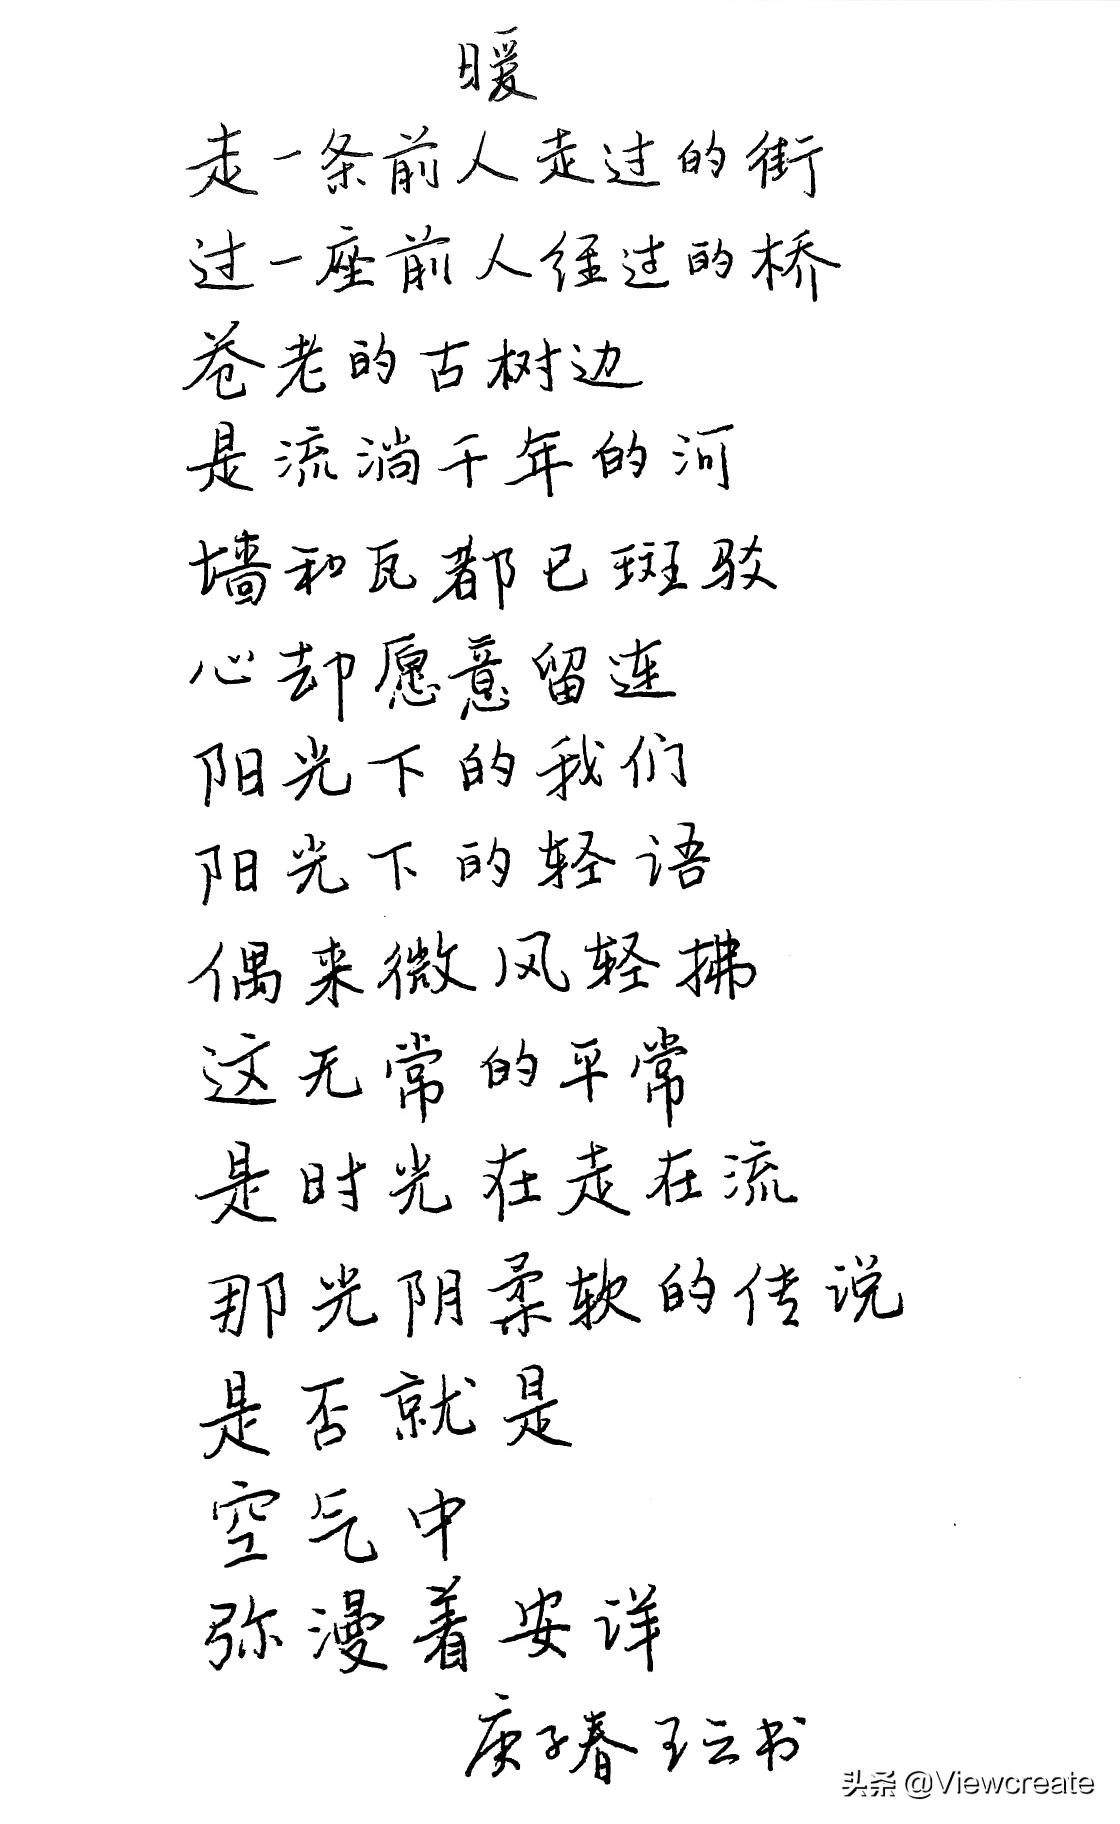 暖
走一条前人走过的街
过一座前人经过的桥
苍老的古树边
是流淌千年的河
墙和瓦都已斑驳
心却愿意留连
阳光下的我们
阳光下的轻语
偶来微风轻拂
这无常的平常
是时光在走在流
那光阴柔软的传说
是否就是
空气中
弥漫着安详
庚子春王云书
头条 @Viewcreate